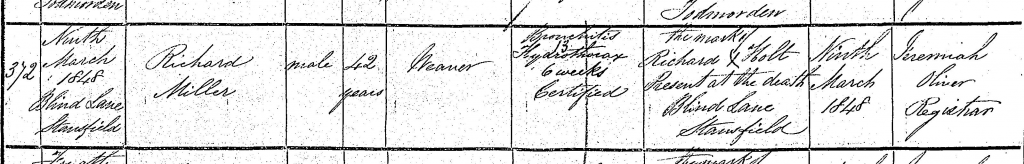 Todmorden
Todmorden
372
Ninth
March
1848
Blind Lane
Stansfield
Richard
Miller
male
42
years
Weaver
Bronchitis
3
Hydrothorax
6 weeks
Certified
The mark of
Richard X Holt
Present at the death
Blind Lane
Stansfield
Ninth
March
1848
Jeremiah
Oliver
Registrar
The mark of